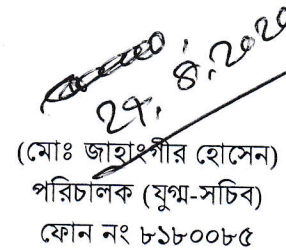 (মোঃ জাহাংগীর হোসেন)
পরিচালক (যুগ্ম-সচিব)
ফোন নং ৮১৮০০৮৫